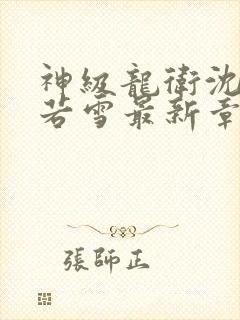 神級龍衛沈
若雪最新章
張師正